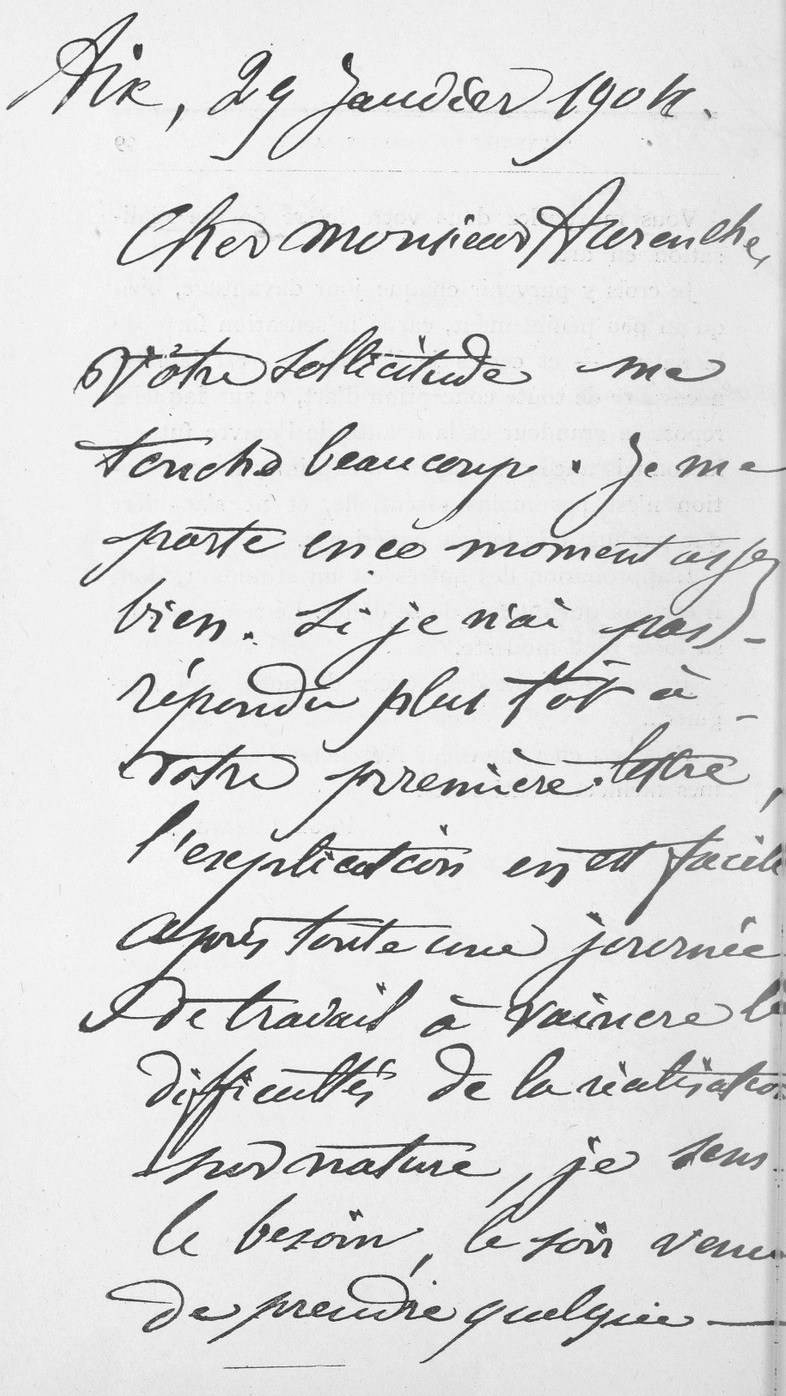 Aix, 29 janvier 1904.
Cher monsieur Aurenche,
Votre sollicitude me
touche beaucoup. Je me
porte en ce moment assez
bien. Si je n'ai pas
répondu plus tôt à
votre première lettre,
l'explication en est facile
après toute une journée
de travail à vaincre le
difficultés de la réalisation
sur nature, je sens
le besoin, le soir venu
de prendre quelque —